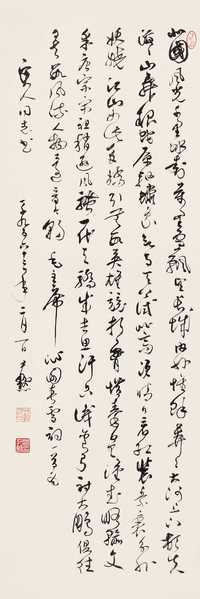 北國風光千里冰封萬里雪飄望長城內外惟餘莽莽大河上下頓失
滔滔山舞銀蛇原馳蠟象欲與天公試比高須晴日看紅裝素裹分外
妖嬈江山如此多嬌引無數英雄競折腰惜秦皇漢武略輸文
采唐宗宋祖稍遜風騷一代天驕成吉思汗只識彎弓射大鵰俱往
矣數風流人物還看今朝 毛主席沁園春雪詞
人同志 年二月